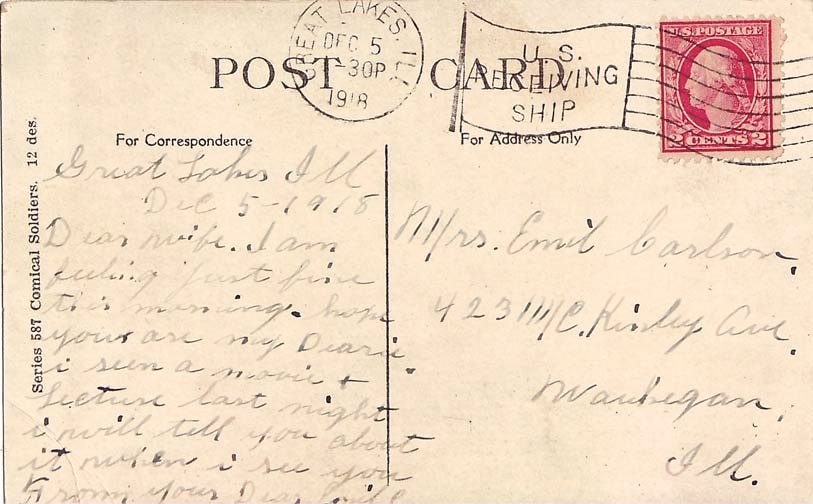 GREAT LAKES, ILL
DEC 5
-30P
1918
U.S.
RECEIVING
SHIP
U.S. POSTAGE
2 CENTS 2
POST CARD
For Correspondence
For Address Only
Series 587 Comical Soldiers. 12 des.
Great Lakes Ill
Dec 5-1918
Dear wife. I am
feeling just fine
this morning. hope
you are my Dearie.
i seen a movie +
Lecture last night
i will tell you about
it when i see you
From your Dear Emil
Mrs. Emil Carlson,
423 McKinley Ave.
Waukegan,
Ill.